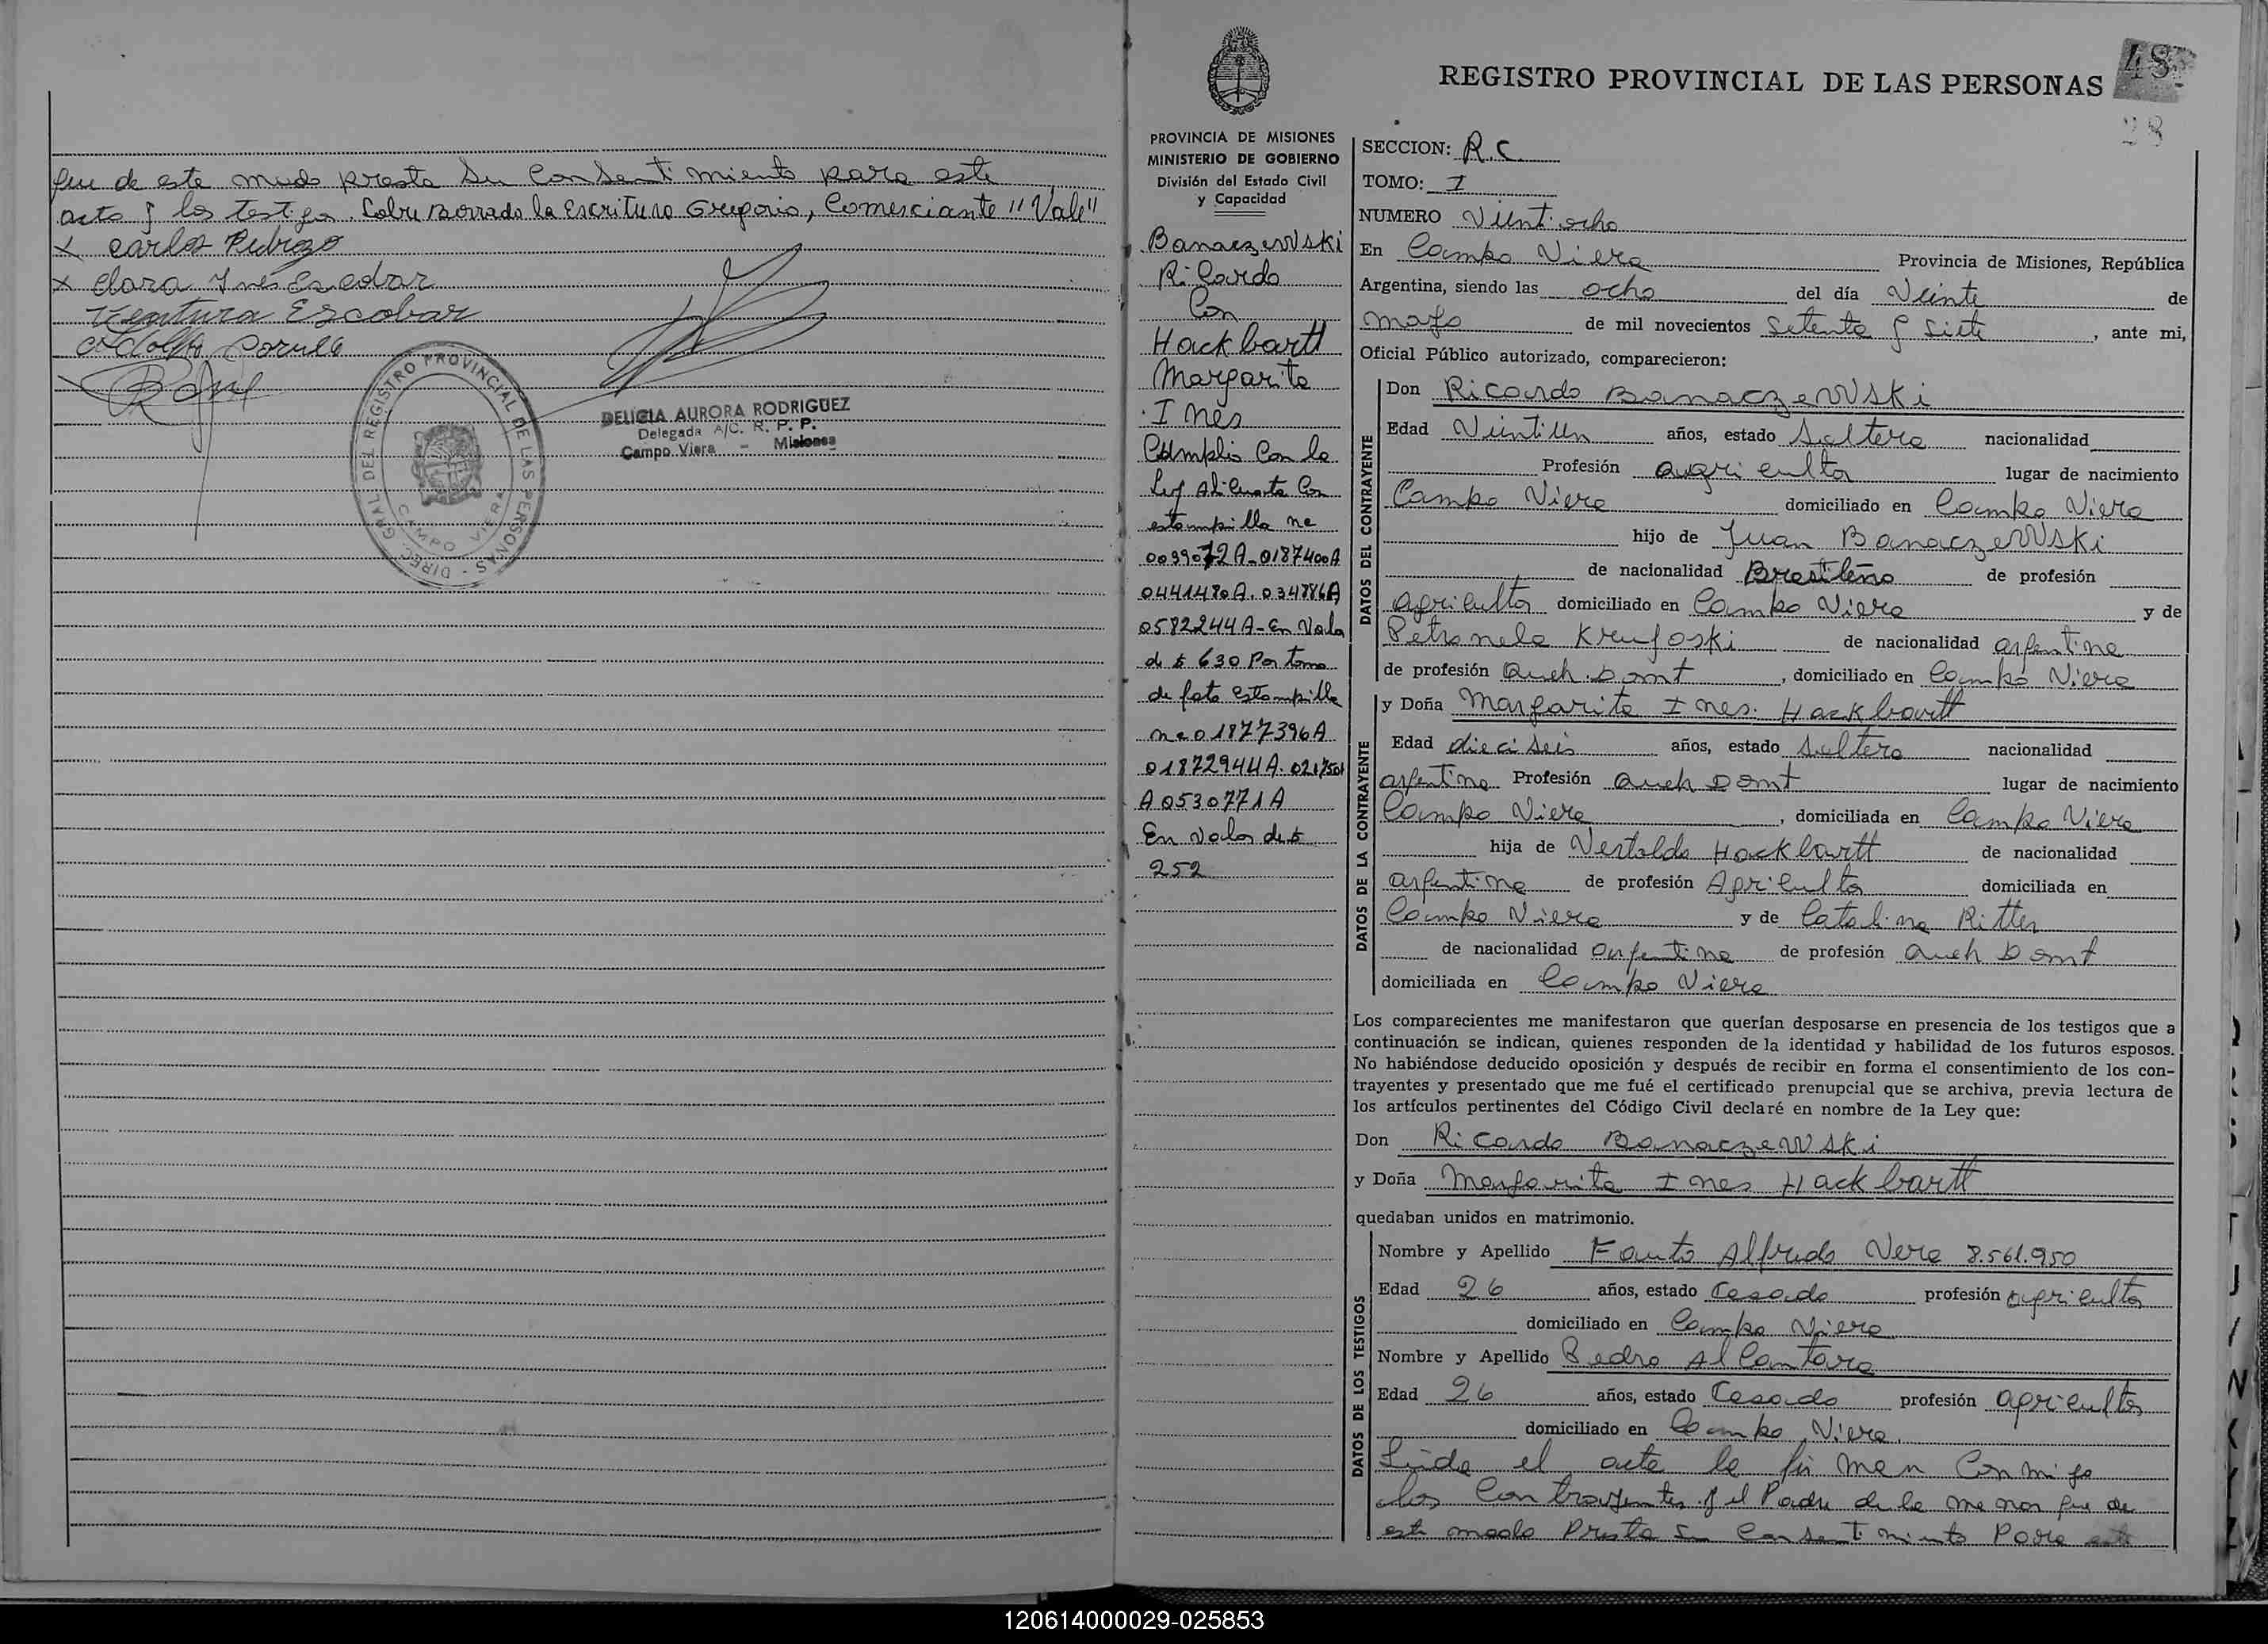 que de este modo presta su consentimiento para este
acto y los testigos. Sobre Borrado la escritura Gregorio, Comerciante "Vale"
x Carlos
x Clara Ines Escobar
Ventura Escobar
DIREC. GRAL. DEL REGISTRO PROVINCIAL DE LAS PERSONAS
CAMPO VIERA
DELICIA AURORA RODRIGUEZ
Delegada A/C. R. P. P.
Campo Viera - Misiones
REGISTRO PROVINCIAL DE LAS PERSONAS
48
28
PROVINCIA DE MISIONES
MINISTERIO DE GOBIERNO
División del Estado Civil
y Capacidad
Banaczewski
Ricardo
Con
Hackbartt
Margarita
Ines
Cumplio Con la
Ley Alicuota Con
estampilla no
0099072A-0187400A
0441480A. 034786A
0582244A-En Valor
de $ 630 Por tomo
de foto estampilla
no 01877396A
01872944A.
A0530771A
En valor de $
252
SECCION: R.C.
TOMO: I
NUMERO Vientiocho
En Campo Viera Provincia de Misiones, República
Argentina, siendo las ocho del día Veinte de
mayo de mil novecientos setenta y siete, ante mi,
Oficial Público autorizado, comparecieron:
DATOS DEL CONTRAYENTE
Don Ricardo Banaczewski
Edad Vientiun años, estado soltero nacionalidad
Profesión agricultor lugar de nacimiento
Campo Viera domiciliado en Campo Viera
hijo de Juan Banaczewski
de nacionalidad Brasileño de profesión
agricultor domiciliado en Campo Viera y de
Petronela Kruyoski de nacionalidad argentina
de profesión Queh. Domt, domiciliado en Campo Viera
DATOS DE LA CONTRAYENTE
y Doña Margarita Ines. Hackbartt
Edad dieciseis años, estado soltera nacionalidad
argentina Profesión Queh Domt lugar de nacimiento
Campo Viera, domiciliada en Campo Viera
hija de Vertoldo Hackbartt de nacionalidad
argentina de profesión Agricultor domiciliada en
Campo Viera y de Catalina Ritter
de nacionalidad argentina de profesión Queh Domt
domiciliada en Campo Viera
Los comparecientes me manifestaron que querían desposarse en presencia de los testigos que a
continuación se indican, quienes responden de la identidad y habilidad de los futuros esposos.
No habiéndose deducido oposición y después de recibir en forma el consentimiento de los con-
trayentes y presentado que me fué el certificado prenupcial que se archiva, previa lectura de
los artículos pertinentes del Código Civil declaré en nombre de la Ley que:
Don Ricardo Banaczewski
y Doña Margarita Ines Hackbartt
quedaban unidos en matrimonio.
DATOS DE LOS TESTIGOS
Nombre y Apellido Fauto Alfredo Vera 8.561.950
Edad 26 años, estado Casado profesión agricultor
domiciliado en Campo Viera
Nombre y Apellido Pedro Alcantara
Edad 26 años, estado Casado profesión agricultor
domiciliado en Campo Viera.
Leida el acta la firman Conmigo
los Contrayentes y el Padre de la menor que de
este modo Presta su Consentimiento Para este
120614000029-025853